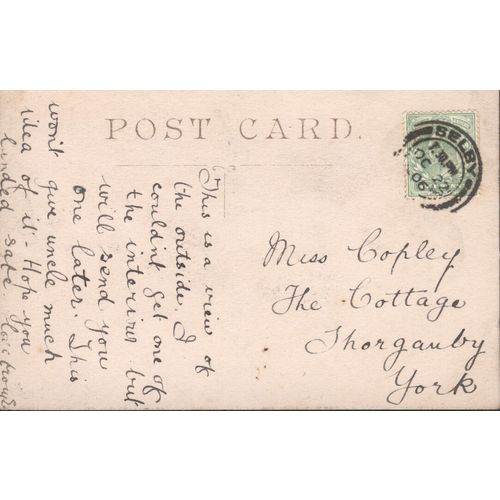 POST CARD.
SELBY
7.30 PM
OC 22
06
This is a view of
the outside. I
couldn't get one of
the interior but
will send you
one later. This
won't give uncle much
idea of it - Hope you
landed safe
Miss Copley
The Cottage
Thorganby
York